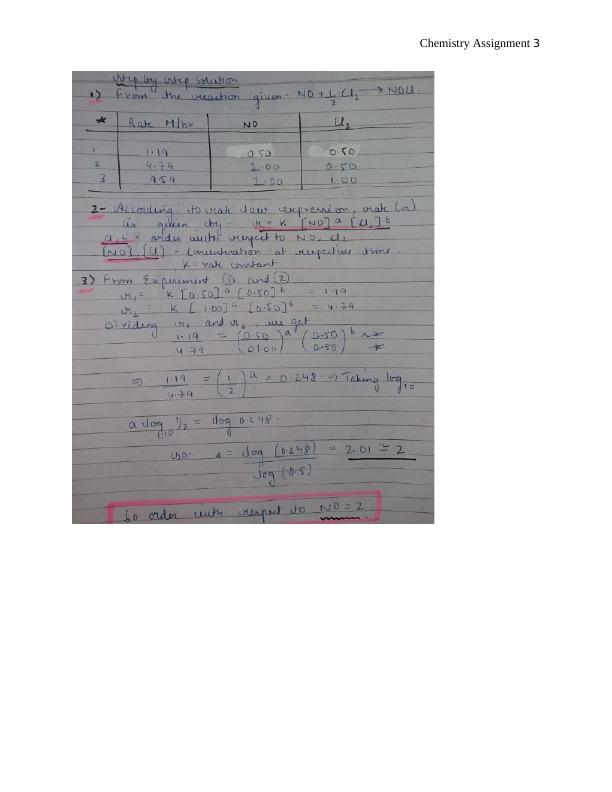 Chemistry Assignment 3
step by step solution
1) From the reaction given- NO + 1/2 Cl2 → NOCl.
* Rate M/hr NO Cl2
1 1.19 0.50 0.50
2 4.79 1.00 0.50
3 9.59 1.00 1.00
2- According to rate law expression, rate (r)
is given by- r = K [NO]^a [Cl2]^b
a, b = order with respect to NO, Cl2
[NO], [Cl] = concentration at respective time.
K = rate constant
3) From Experiment ① and ②
r1 = K [0.50]^a [0.50]^b = 1.19
r2 = K [1.00]^a [0.50]^b = 4.79
Dividing r1 and r2, we get.
1.19/4.79 = (0.50/0100)^a (0.50/0.55)^b
⇒ 1.19/4.79 = (1/2)^a = 0.248 ⇒ Taking log10
a log10 1/2 = log 0.248.
so: a = log (0.248)/log (0.5) = 2.01 ≅ 2
So order with respect to NO = 2.